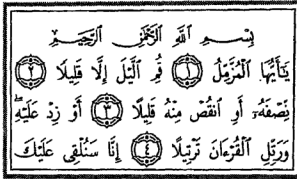 بِسْمِ اللَّهِ الرَّحْمَٰنِ الرَّحِيمِ
يَٰٓأَيُّهَا الْمُزَّمِّلُ ١ قُمِ الَّيْلَ إِلَّا قَلِيلًا ٢
نِّصْفَهُۥٓ أَوِ انْقُصْ مِنْهُ قَلِيلًا ٣ أَوْ زِدْ عَلَيْهِ
وَرَتِّلِ الْقُرْءَانَ تَرْتِيلًا ٤ إِنَّا سَنُلْقِى عَلَيْكَ